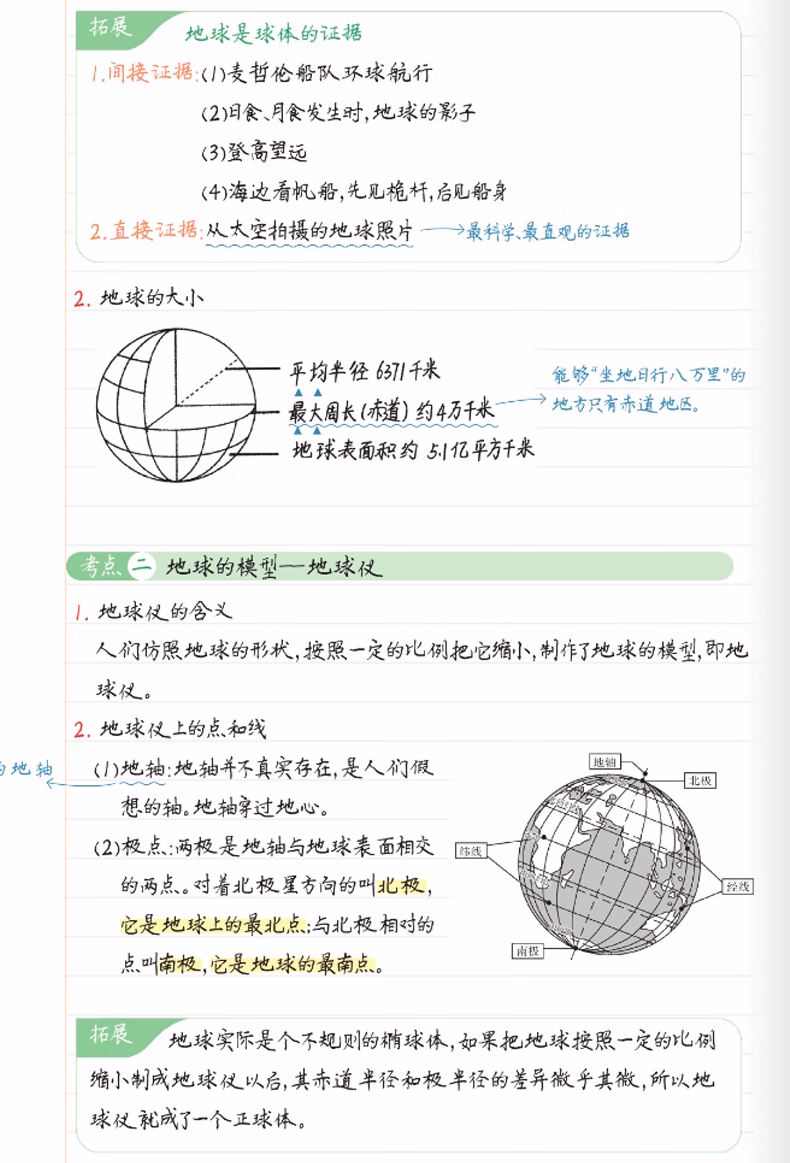 拓展
地球是球体的证据
1.间接证据:(1)麦哲伦船队环球航行
(2)日食、月食发生时,地球的影子
(3)登高望远
(4)海边看帆船,先见桅杆,后见船身
2.直接证据:从太空拍摄的地球照片
最科学、最直观的证据
2. 地球的大小
平均半径 6371千米
最大周长(赤道) 约4万千米
地球表面积约 5.1亿平方千米
能够“坐地日行八万里”的
地方只有赤道地区。
考点 二 地球的模型——地球仪
1. 地球仪的含义
人们仿照地球的形状,按照一定的比例把它缩小,制作了地球的模型,即地
球仪。
2. 地球仪上的点和线
的地轴
(1)地轴:地轴并不真实存在,是人们假
想的轴。地轴穿过地心。
(2)极点:两极是地轴与地球表面相交
的两点。对着北极星方向的叫北极,
它是地球上的最北点;与北极相对的
点叫南极,它是地球的最南点。
地轴
北极
纬线
经线
南极
拓展
地球实际是个不规则的椭球体,如果把地球按照一定的比例
缩小制成地球仪以后,其赤道半径和极半径的差异微乎其微,所以地
球仪就成了一个正球体。